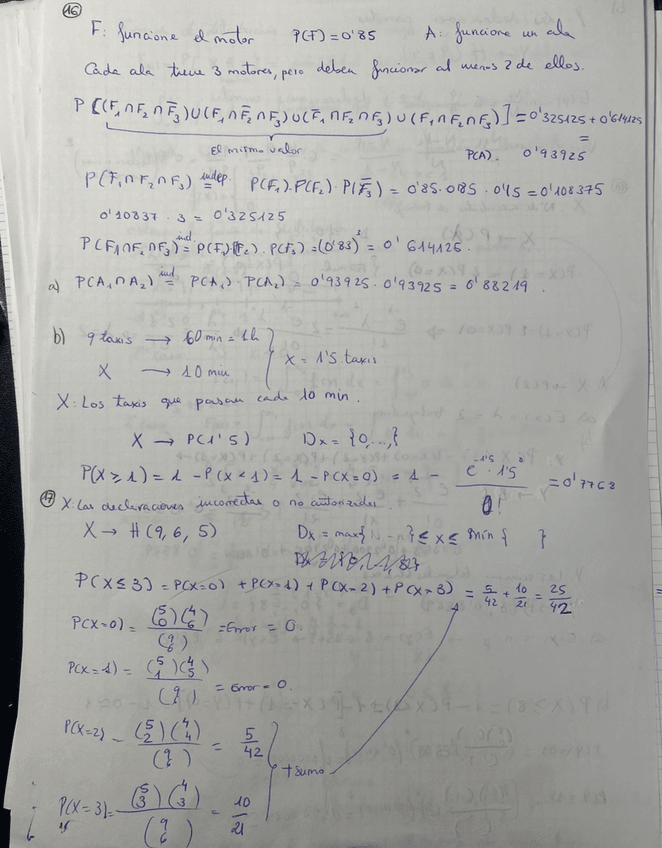 16
F: funcione el motor P(F)=0'85 A: funcione un ala
Cada ala tiene 3 motores, pero deben funcionar al menos 2 de ellos.
P[(F₁∩F₂∩F̅₃)∪(F₁∩F̅₂∩F₃)∪(F̅₁∩F₂∩F₃)∪(F₁∩F₂∩F₃)]=0'325125+0'614125
=
El mismo valor P(A). 0'93925
P(F₁∩F₂∩F̅₃) indep. = P(F₁).P(F₂).P(F̅₃) = 0'85.0'85.0'15=0'108375
0'10837.3=0'325125
P(F₁∩F₂∩F₃) ind = P(F₁).P(F₂).P(F₃)=(0'85)³=0'614125.
a) P(A₁∩A₂) ind = P(A₁).P(A₂)=0'93925.0'93925=0'88219.
b) 9 taxis → 60 min = 1h
X → 10 min } X=1'5 taxis
X: Los taxis que pasan cada 10 min.
X → P(1'5) Dx={0,...,}
P(X≥1)=1-P(X<1)=1-P(X=0)=1-e^-1'5.1'5⁰/0!=0'7768
17 X: Las declaraciones incorrectas o no autorizadas.
X → H(9,6,5) Dx=max{ }≤x≤min{ }
P(X≤3)=P(X=0)+P(X=1)+P(X=2)+P(X=3)=5/42+10/21=25/42
P(X=0)=(5 0)(4 6)/(9 6)=Error=0.
P(X=1)=(5 1)(4 5)/(9 6)=Error=0.
P(X=2)=(5 2)(4 4)/(9 6)=5/42
+suma
P(X=3)=(5 3)(4 3)/(9 6)=10/21